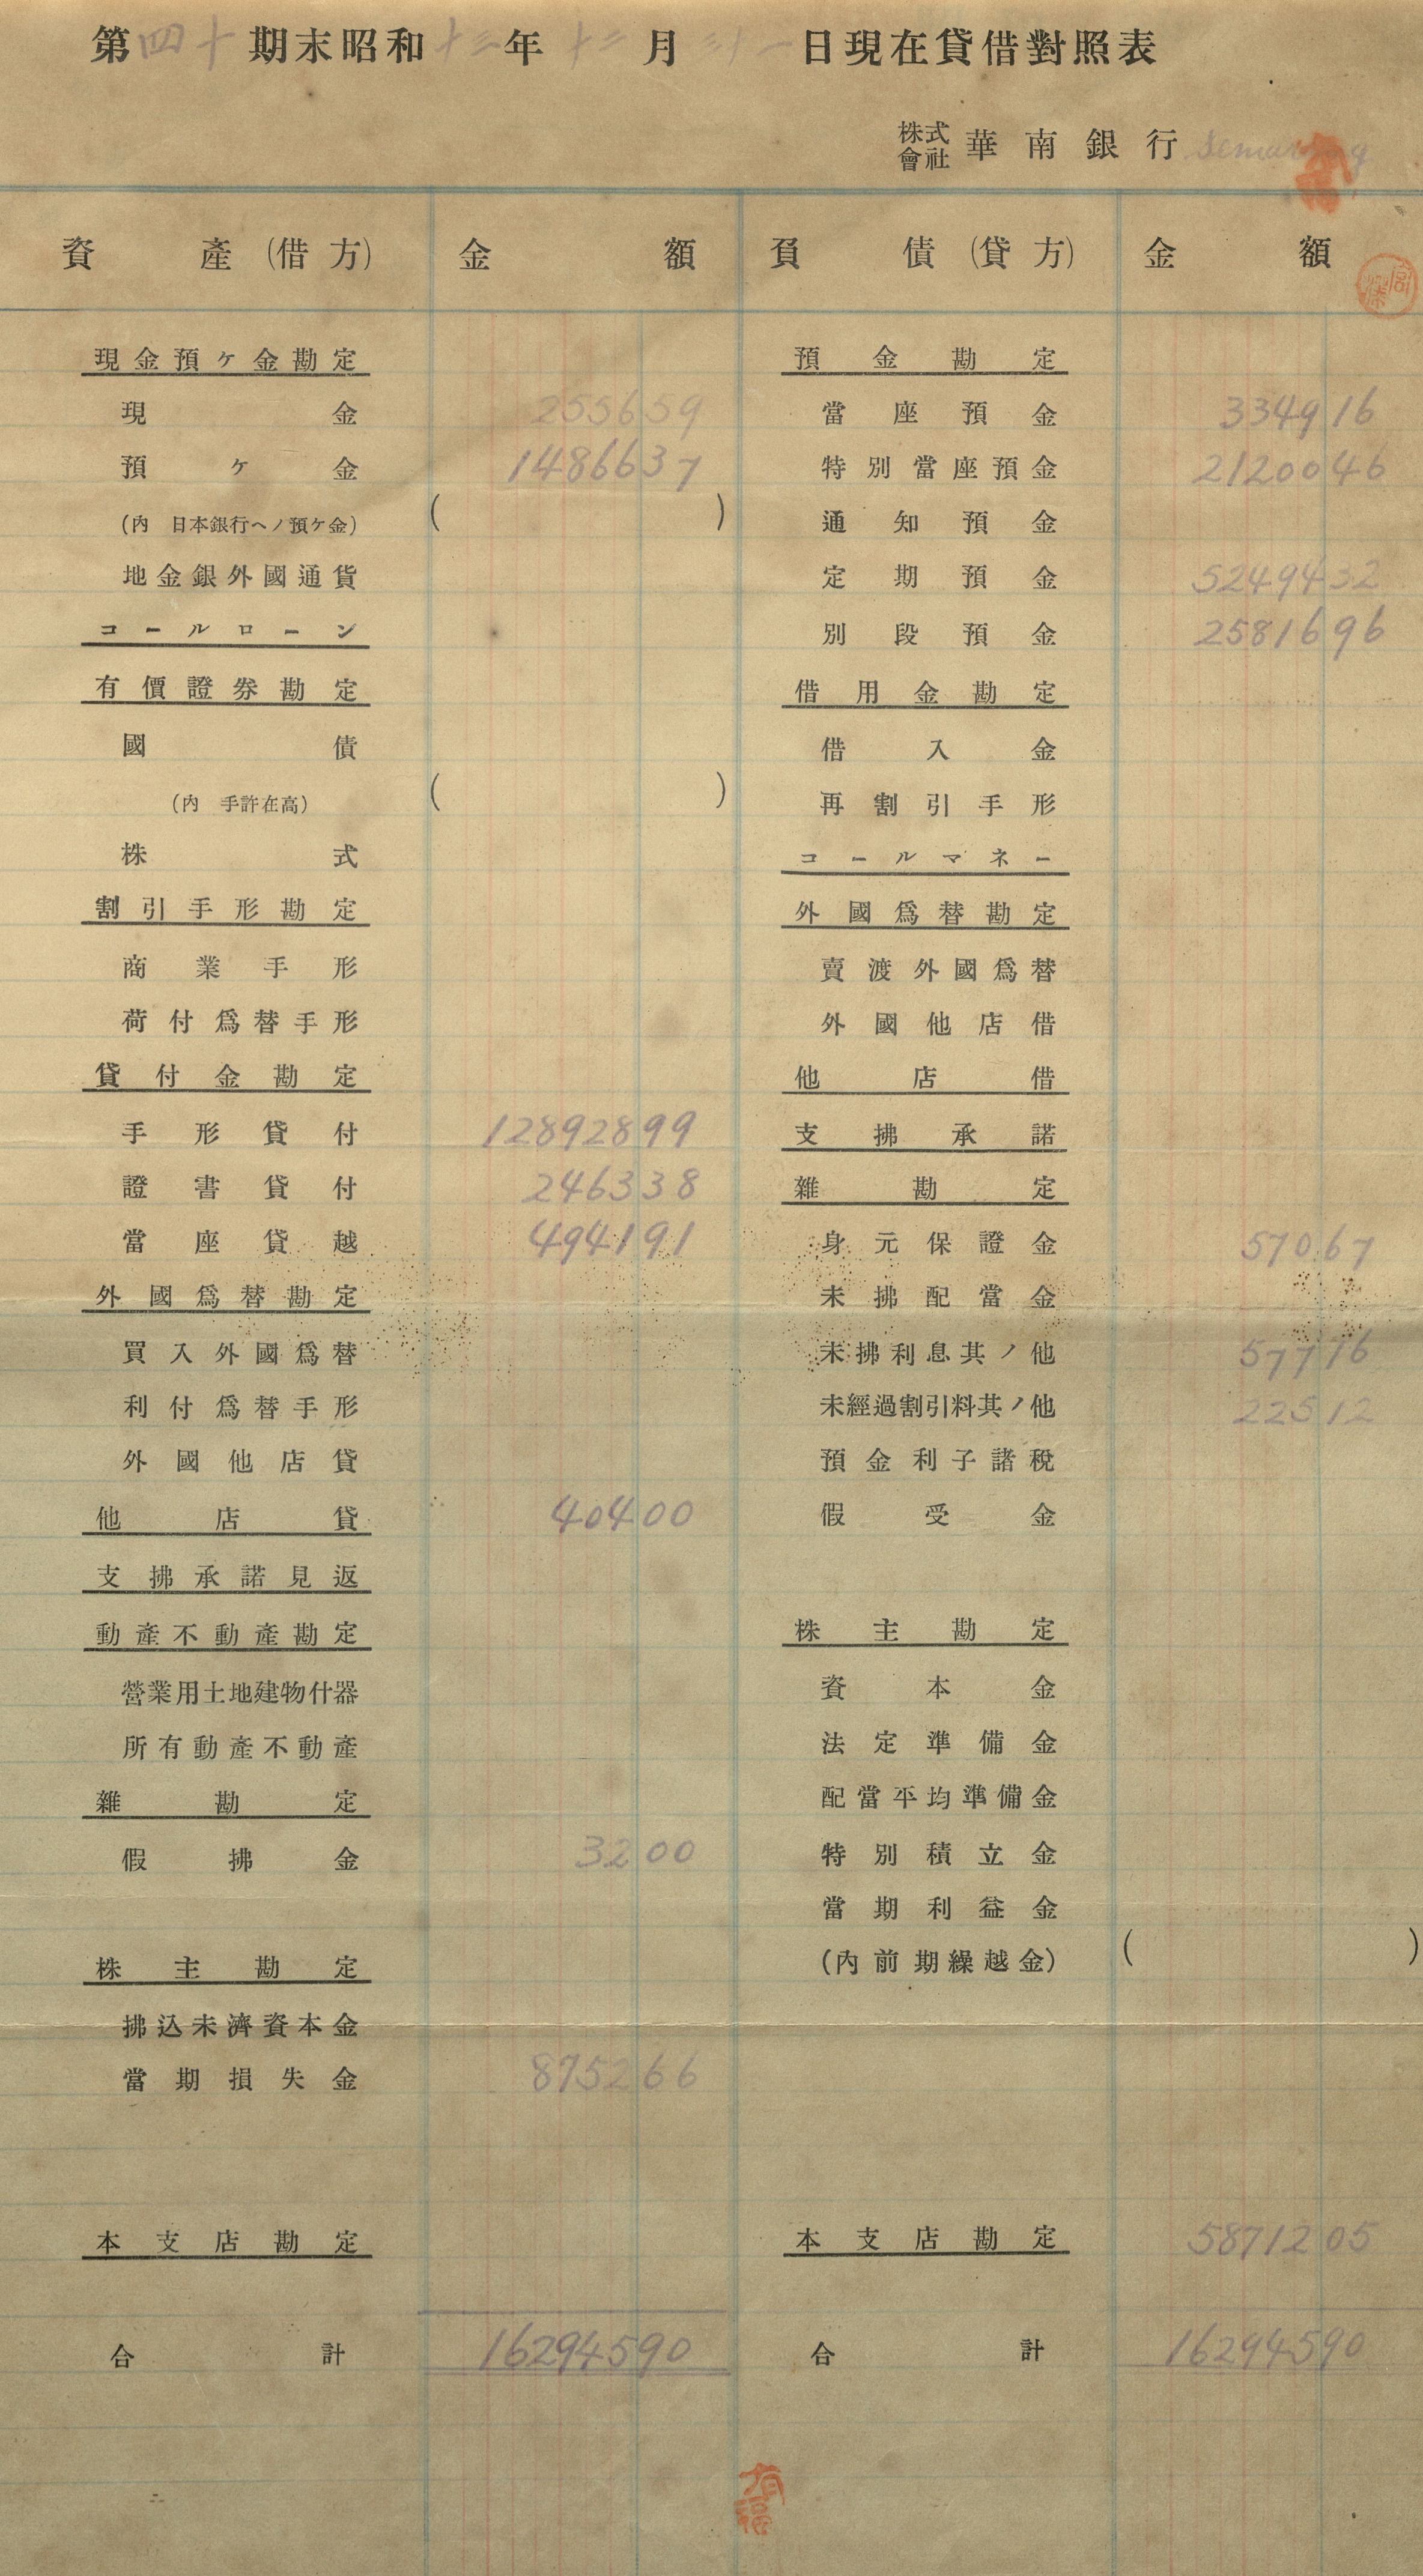 第四十期末昭和十三年十二月三十一日現在貸借對照表
株式會社 華南銀行 Semarang
資產(借方) 金額 負債(貸方) 金額
現金預ケ金勘定 預金勘定
現金 255659 當座預金 334916
預ケ金 1486637 特別當座預金 2120046
(內 日本銀行ヘノ預ケ金) ( ) 通知預金
地金銀外國通貨 定期預金 5249432
コールローン 別段預金 2581696
有價證券勘定 借用金勘定
國債 借入金
(內 手許在高) ( ) 再割引手形
株式 コールマネー
割引手形勘定 外國爲替勘定
商業手形 賣渡外國爲替
荷付爲替手形 外國他店借
貸付金勘定 他店借
手形貸付 12892899 支拂承諾
證書貸付 246338 雜勘定
當座貸越 494191 身元保證金 57067
外國爲替勘定 未拂配當金
買入外國爲替 未拂利息其ノ他 57716
利付爲替手形 未經過割引料其ノ他 22512
外國他店貸 預金利子諸稅
他店貸 40400 假受金
支拂承諾見返
動產不動產勘定 株主勘定
營業用土地建物什器 資本金
所有動產不動產 法定準備金
雜勘定 配當平均準備金
假拂金 3200 特別積立金
當期利益金
株主勘定 (內前期繰越金) ( )
拂込未濟資本金
當期損失金 875266
本支店勘定 本支店勘定 5871205
合計 16294590 合計 16294590
有福